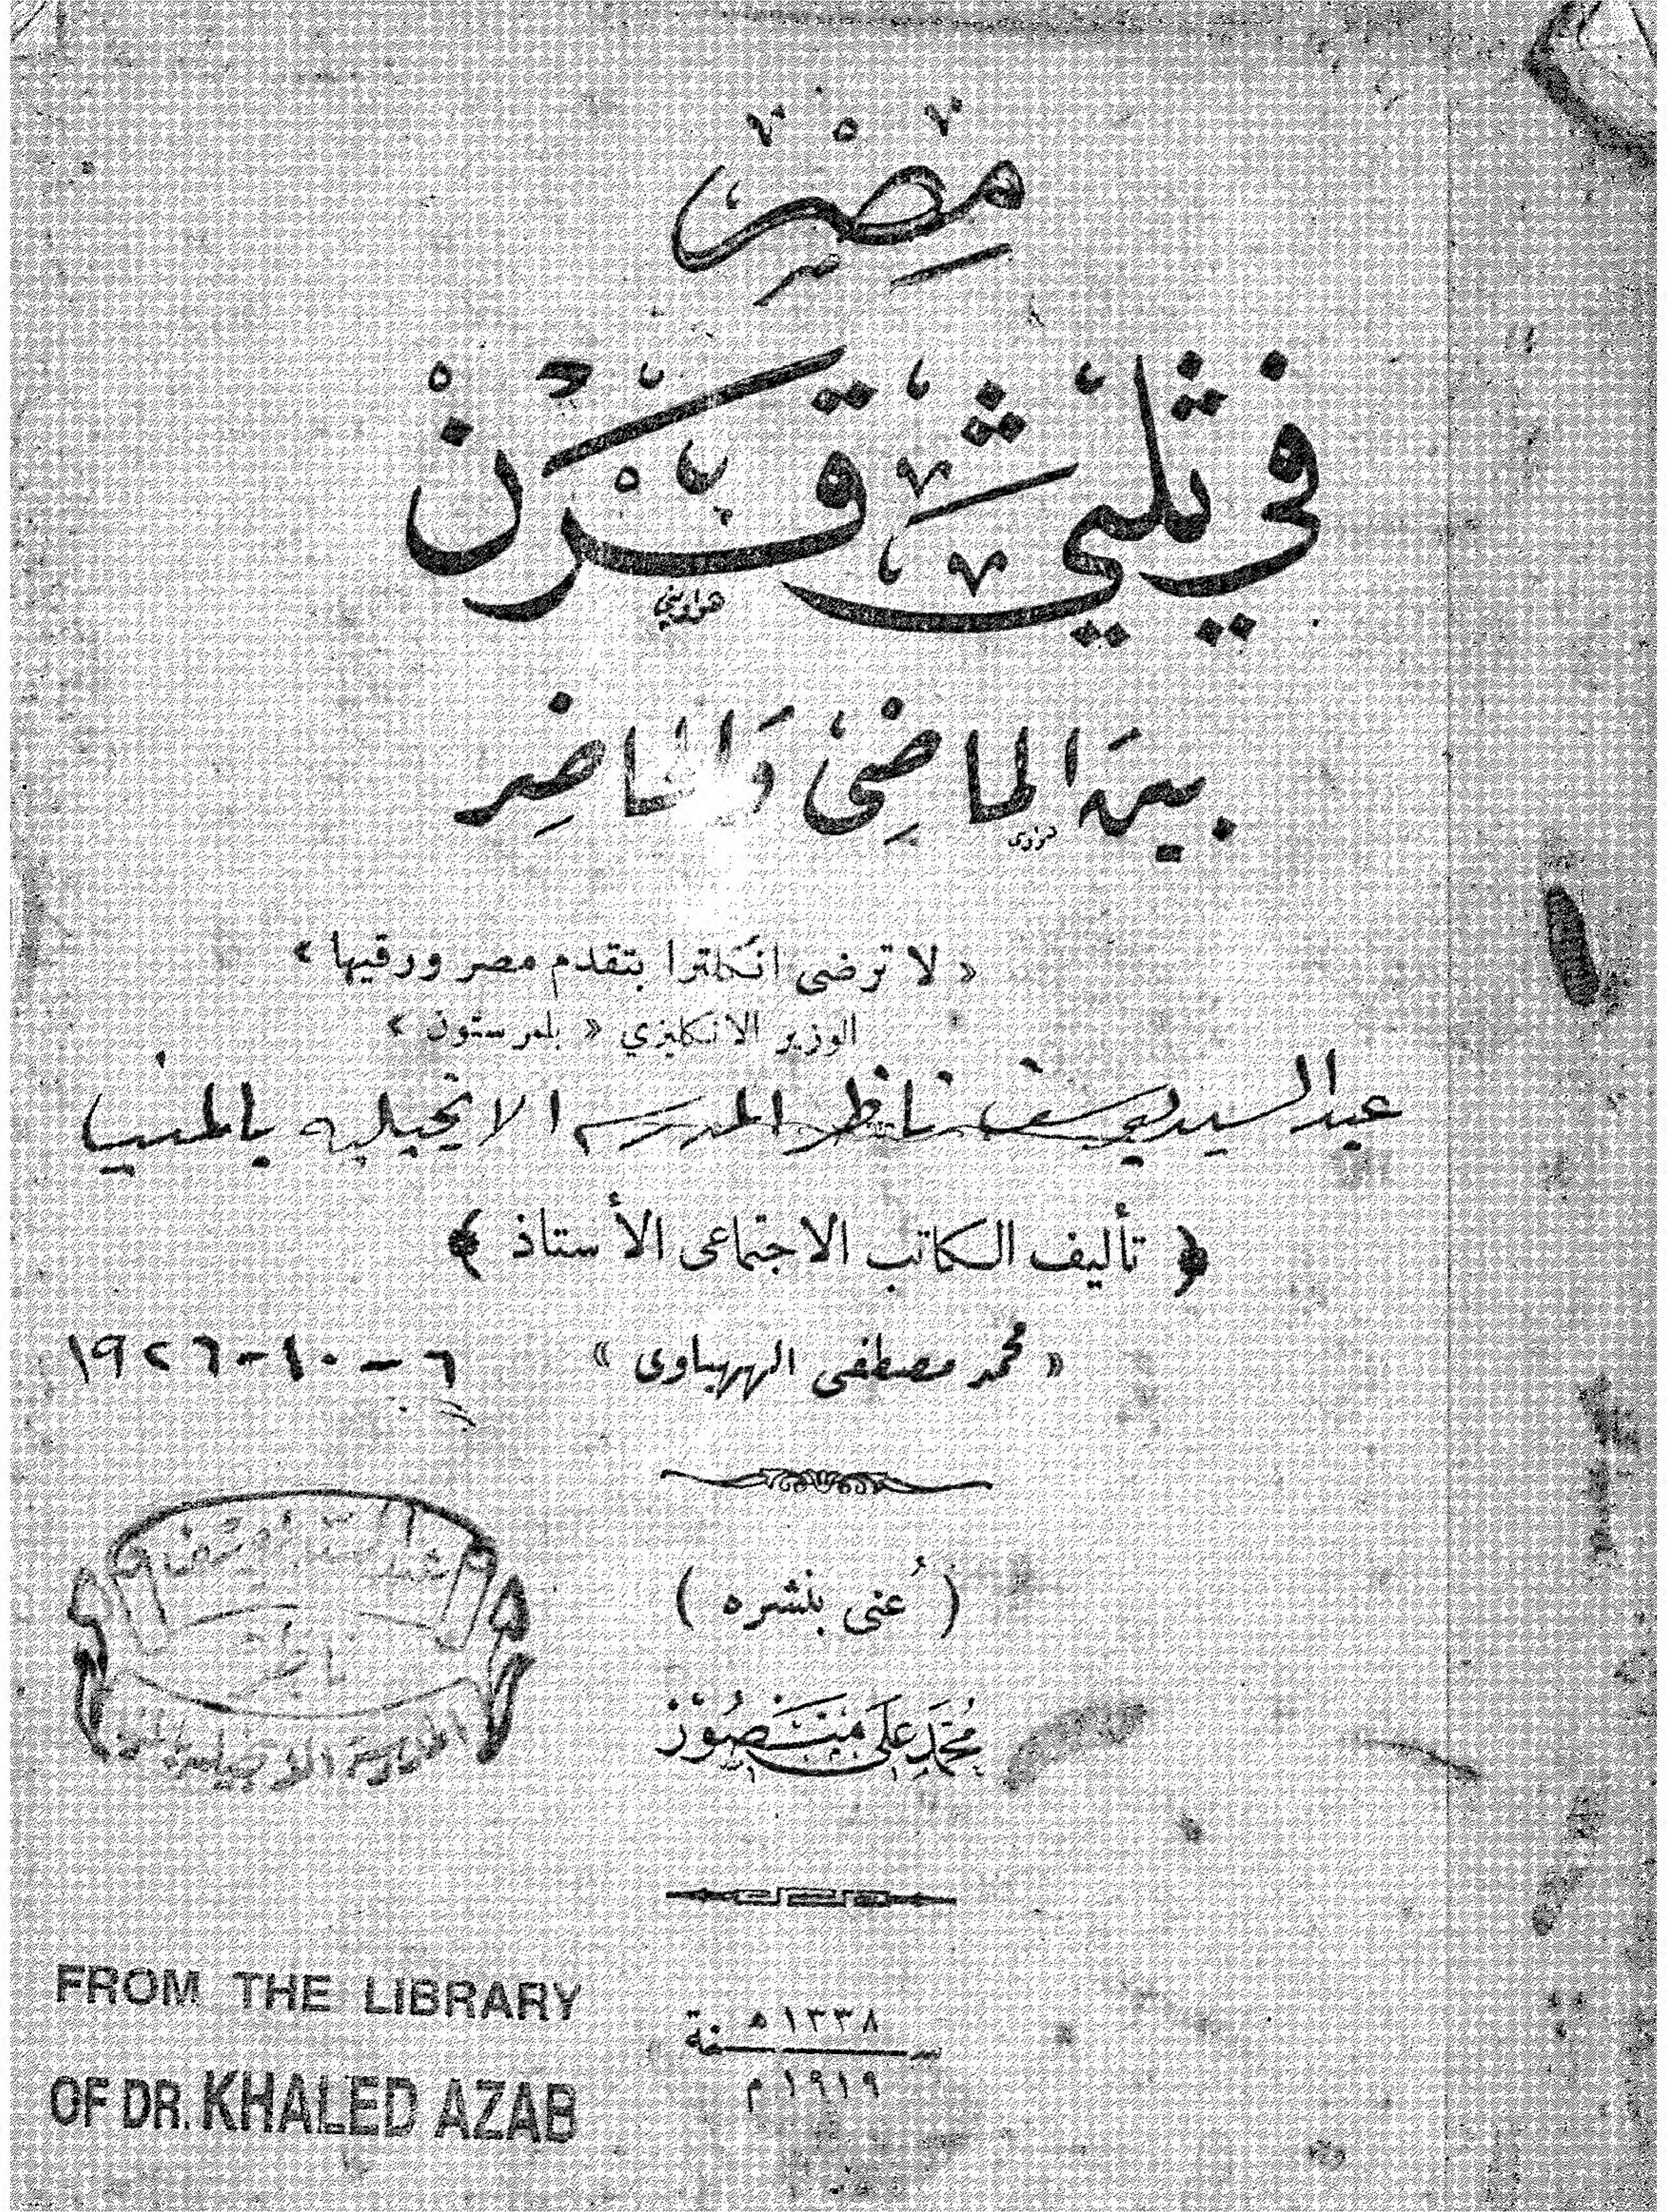 مصر
في ثلثي قرن
هواويني
بين الماضى والحاضر
« لا ترضى انكلترا بتقدم مصر ورقيها »
الوزير الانكليزي « بلمرستون »
عبد السيد يوسف ناظر المدرسه الانجيليه بالمنيا
﴿ تأليف الكاتب الاجتماعى الأستاذ ﴾
« محمد مصطفى الههياوى »
٦-١٠-١٩٢٦
( عُنى بنشره )
محمد على منصور
ناظر
المدرسة الانجيلية
سنة
١٣٣٨ ه
١٩١٩ م
FROM THE LIBRARY
OF DR. KHALED AZAB